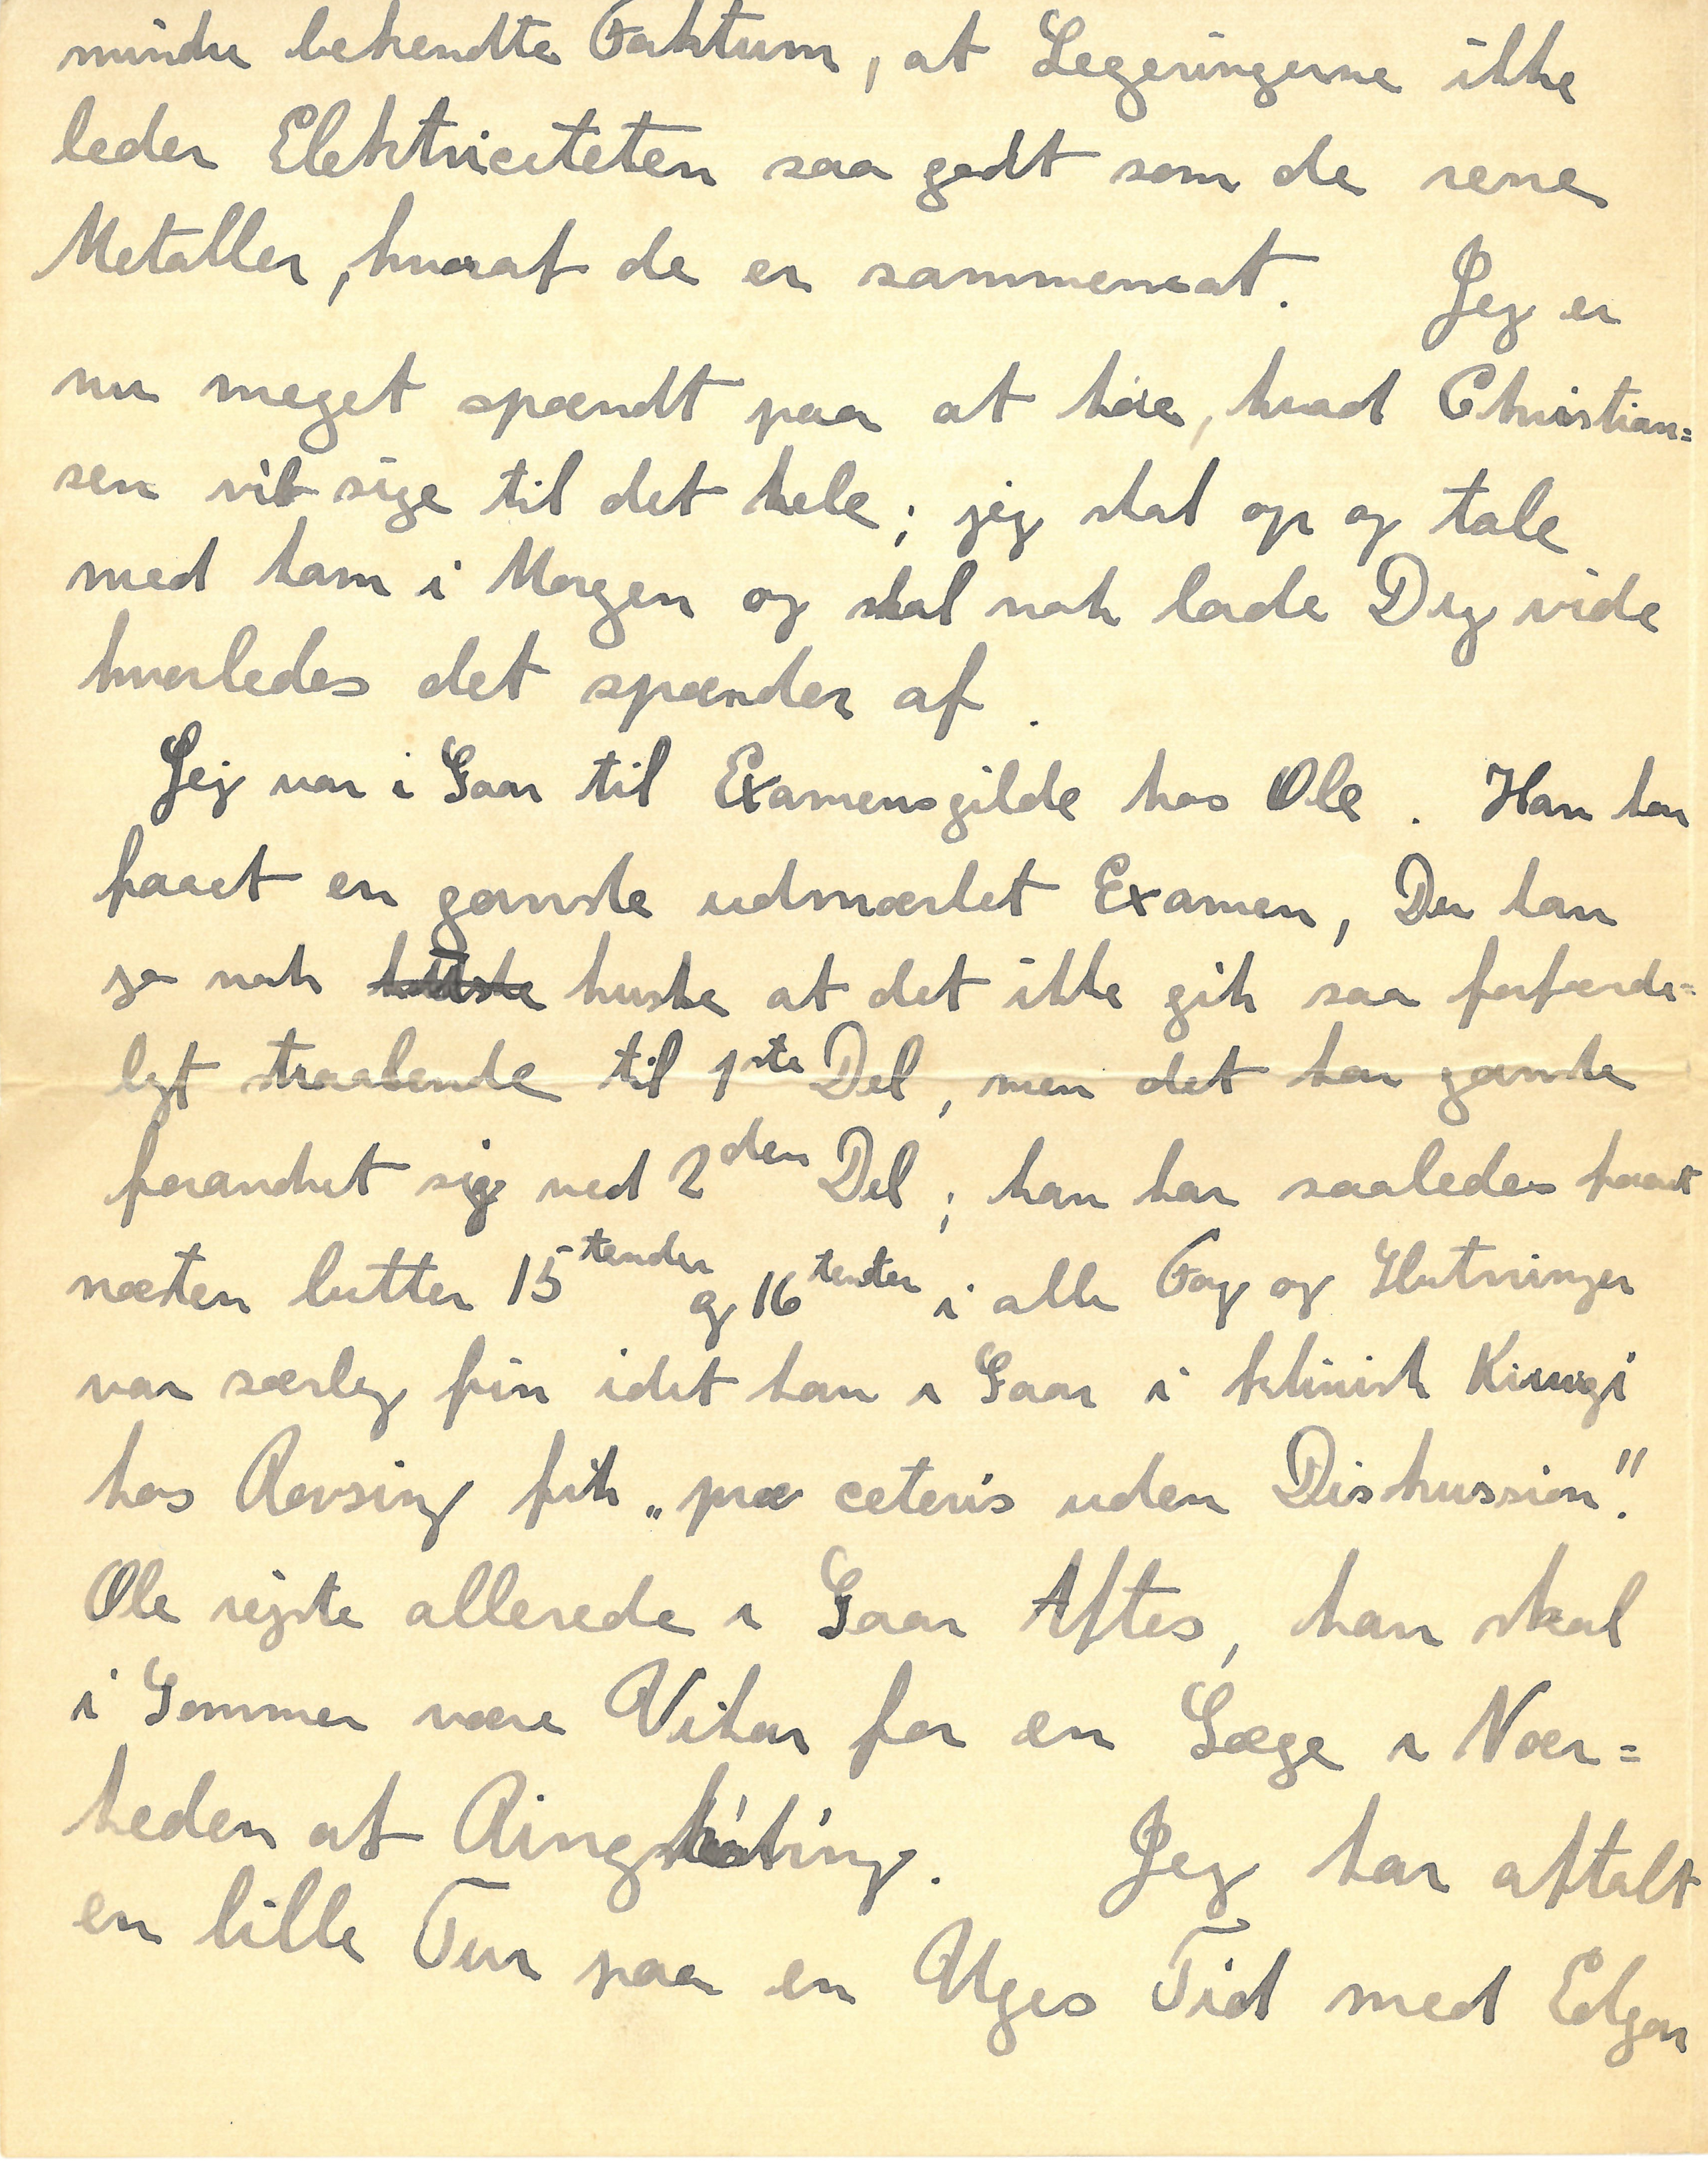 mindre bekendte Faktum, at Legeringerne ikke
leder Elektriciteten saa godt som de rene
Metaller, hvoraf de er sammensat. Jeg er
nu meget spændt paa at høre, hvad Christian=
sen vil sige til det hele; jeg skal op og tale
med ham i Morgen og skal nok lade Dig vide
hvorledes det spænder af.
Jeg var i Gaar til Examensgilde hos Ole. Han har
faaet en ganske udmærket Examen, Du kan
jo nok huske at det ikke gik saa forfærde=
ligt straalende til 1ste Del, men det har ganske
forandret sig ved 2den Del; han har saaledes faaet
næsten lutter 15tender og 16tender i alle Fag og Slutningen
var særlig fin idet han i Gaar i klinisk Kirurgi
hos Rovsing fik „præ ceteris uden Diskussion".
Ole rejste allerede i Gaar Aftes, han skal
i Sommer være Vikar for en Læge i Nær=
heden af Ringkøbing. Jeg har aftalt
en lille Tur paa en Uges Tid med Edgar